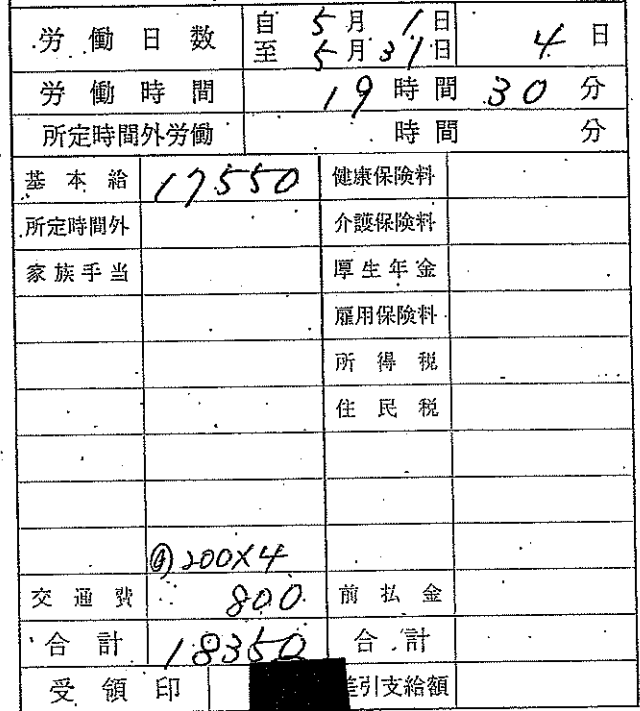 労働日数 自 5月1日 至 5月31日 4日
労働時間 19時間30分
所定時間外労働 時間 分
基本給 17550 健康保険料
所定時間外 介護保険料
家族手当 厚生年金
雇用保険料
所得税
住民税
@200×4
交通費 800 前払金
合計 18350 合計
受領印 差引支給額